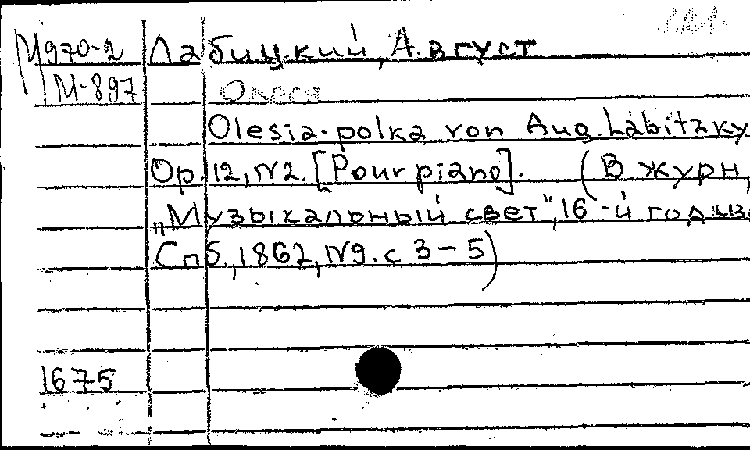 М970-2 Лабицкий, Август
М-897 Олеся
Olesia-polka von Aug. Labitzky
Op. 12, N2. [Pour piano]. (В журн,
„Музыкальный свет", 16-й год из
Спб., 1862, N9. с 3-5)
1675